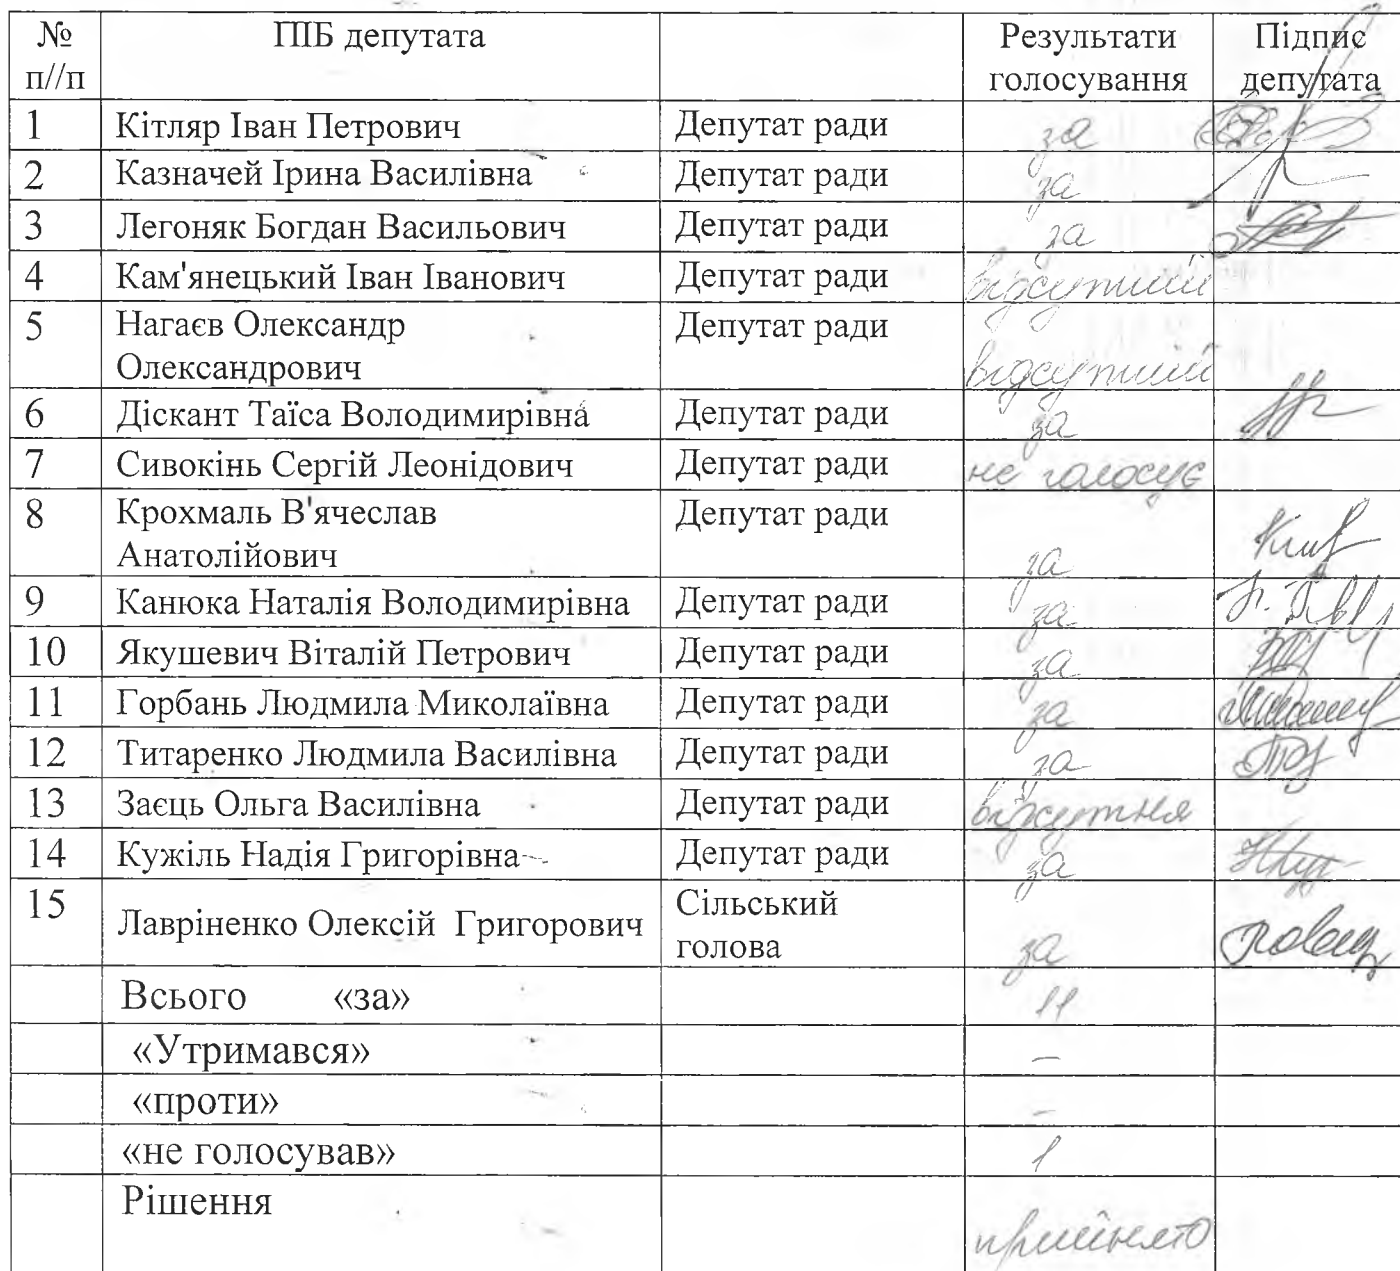 № п//п ПІБ депутата Результати голосування Підпис депутата
1 Кітляр Іван Петрович Депутат ради за
2 Казначей Ірина Василівна Депутат ради за
3 Легоняк Богдан Васильович Депутат ради за
4 Кам'янецький Іван Іванович Депутат ради відсутній
5 Нагаєв Олександр Олександрович Депутат ради відсутній
6 Діскант Таїса Володимирівна Депутат ради за
7 Сивокінь Сергій Леонідович Депутат ради не голосує
8 Крохмаль В'ячеслав Анатолійович Депутат ради за
9 Канюка Наталія Володимирівна Депутат ради за
10 Якушевич Віталій Петрович Депутат ради за
11 Горбань Людмила Миколаївна Депутат ради за
12 Титаренко Людмила Василівна Депутат ради за
13 Заєць Ольга Василівна Депутат ради відсутня
14 Кужіль Надія Григорівна Депутат ради за
15 Лавріненко Олексій Григорович Сільський голова за
Всього «за» 11
«Утримався» –
«проти» –
«не голосував» 1
Рішення прийнято